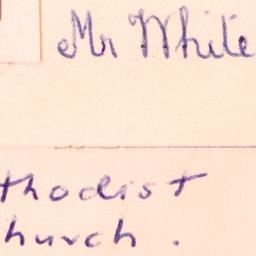 Mr White
thodist
hurch.